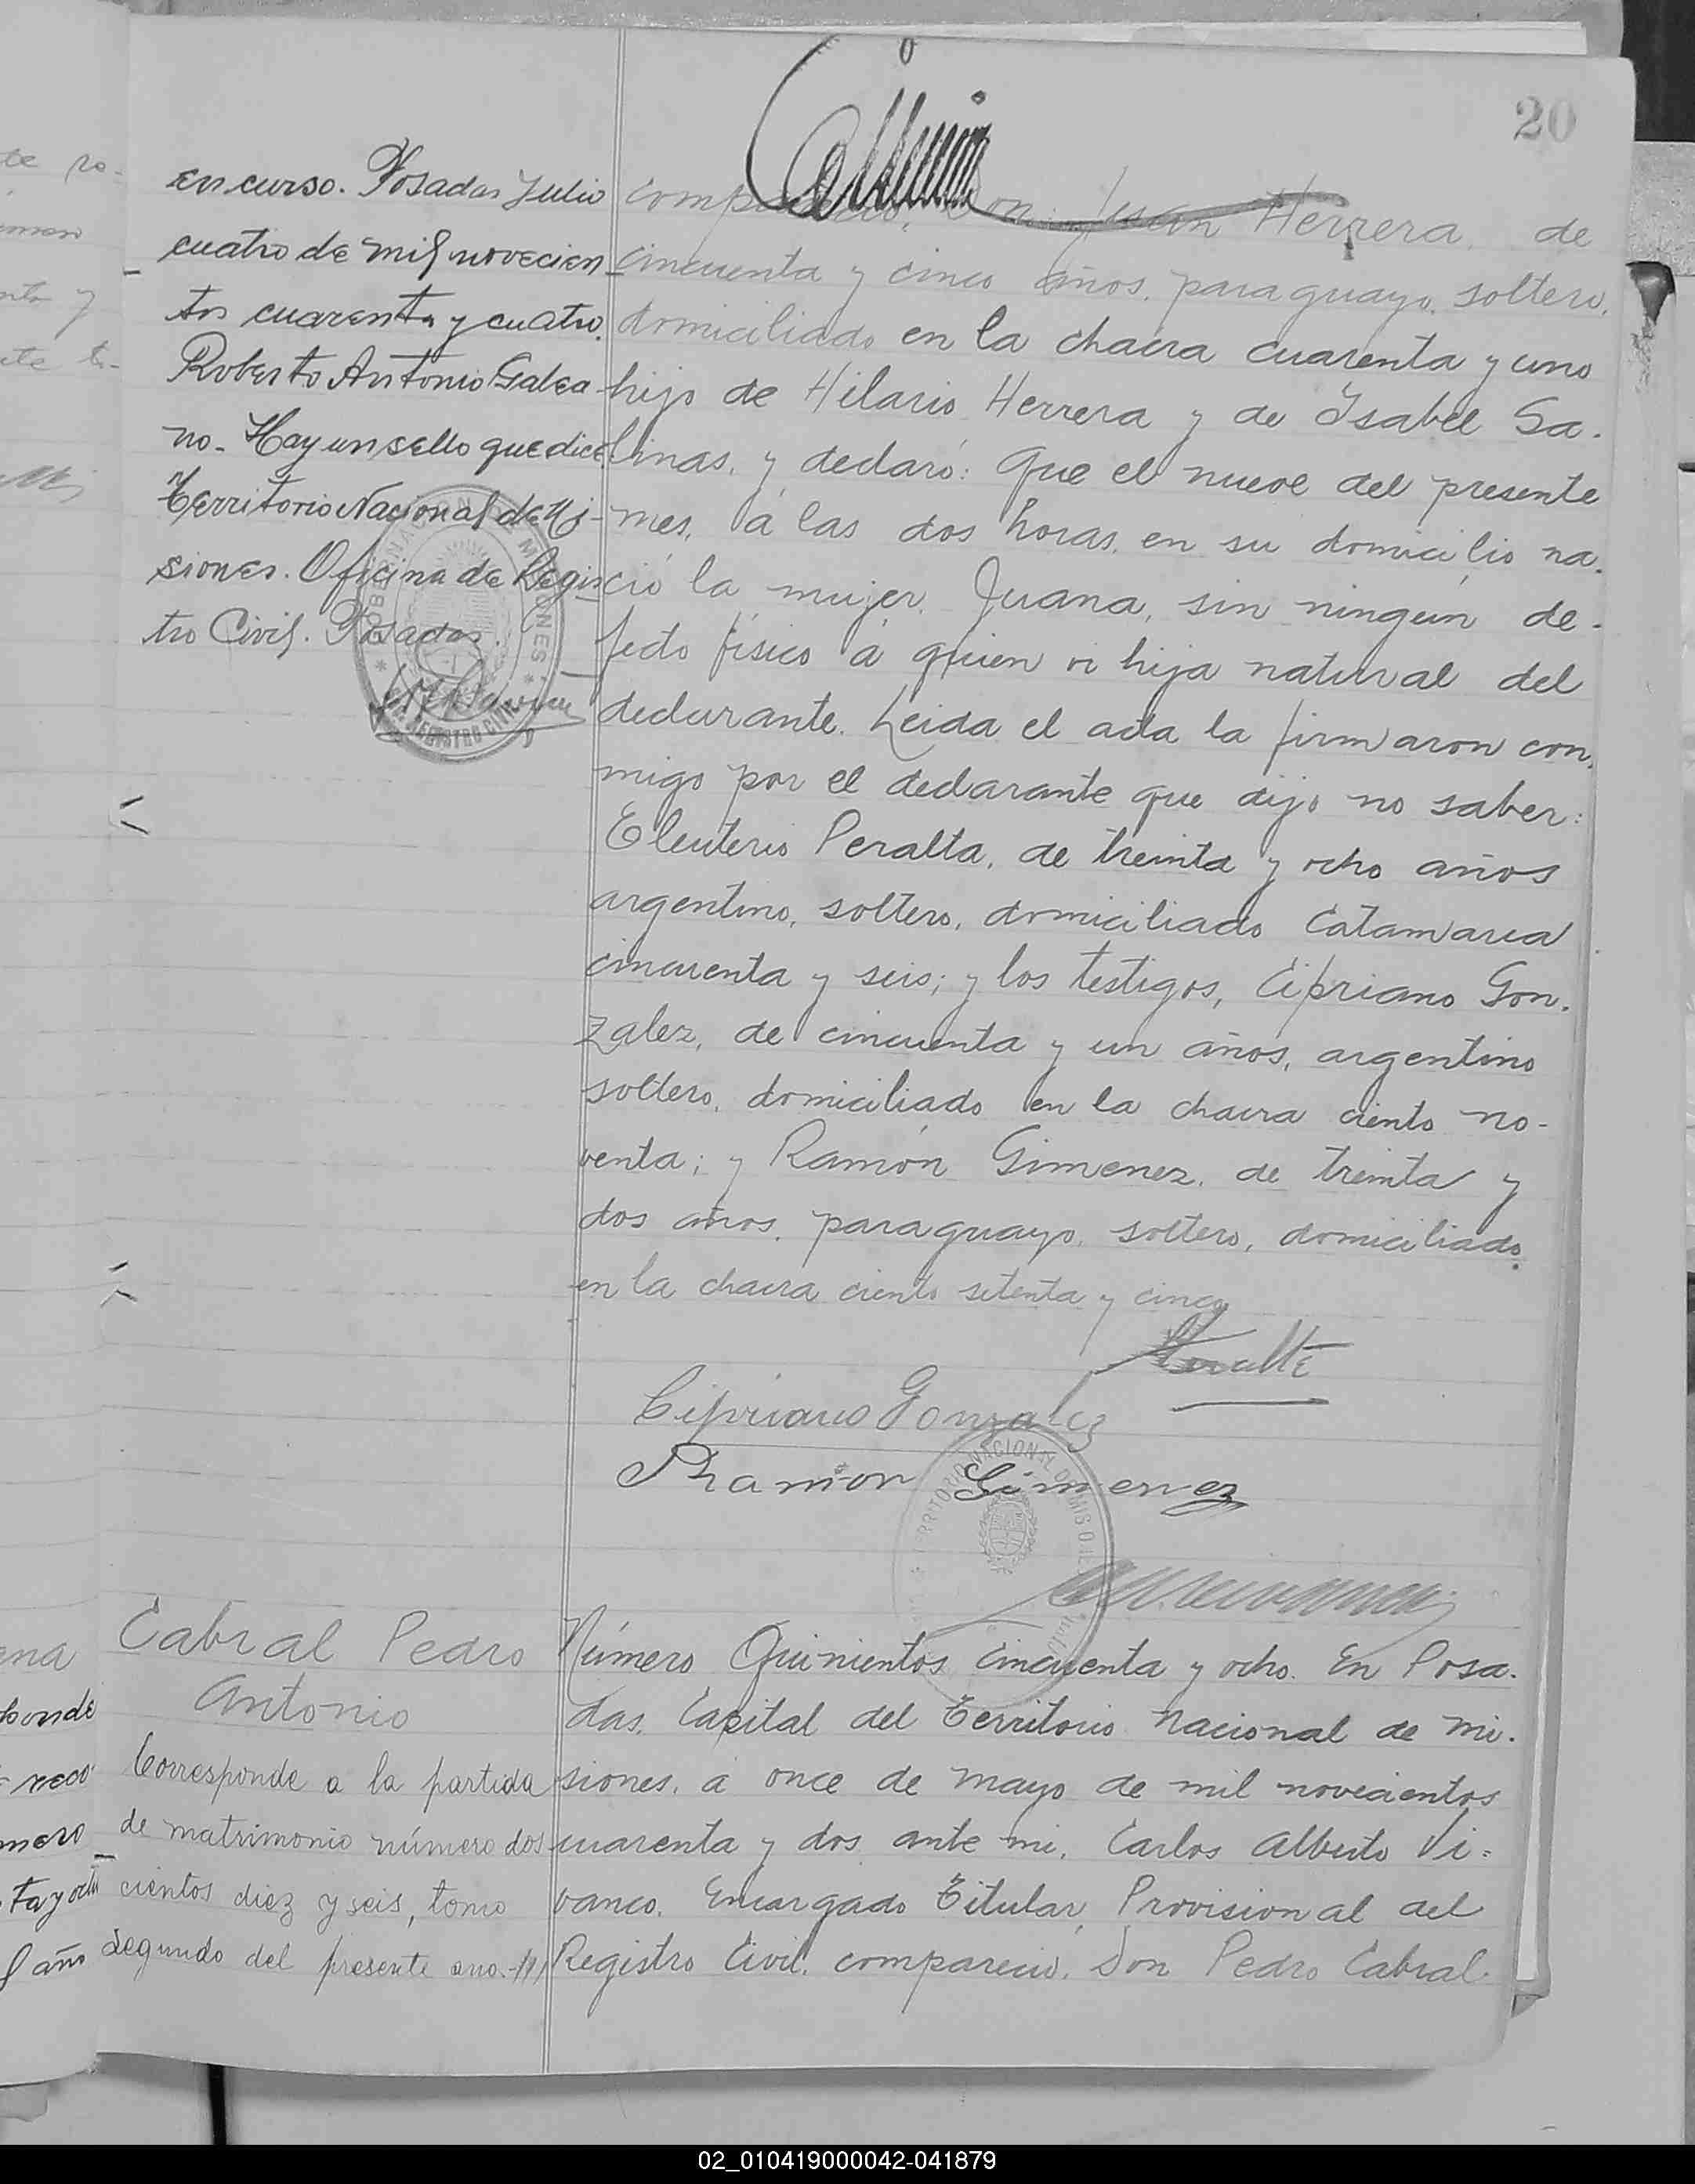 20
en curso. Posadas Julio
cuatro de mil novecien-
tos cuarenta y cuatro.
Roberto Antonio Galea-
no. Hay un sello que dice:
Territorio Nacional de Mi-
siones. Oficina de Regis-
tro Civil. Posadas.
compareció, Don Juan Herrera, de
cincuenta y cinco años, paraguayo, soltero,
domiciliado en la chacra cuarenta y uno
hijo de Hilario Herrera y de Isabel Sa-
linas, y declaró: Que el nueve del presente
mes, á las dos horas, en su domicilio na-
ció la mujer, Juana, sin ningún de-
fecto físico á quien vi hija natural del
declarante. Leida el acta la firmaron con-
migo por el declarante que dijo no saber:
Eleuterio Peralta, de treinta y ocho años
argentino, soltero, domiciliado Catamarca
cincuenta y seis; y los testigos, Cipriano Gon-
zalez, de cincuenta y un años, argentino
soltero, domiciliado en la chacra ciento no-
venta; y Ramón Gimenez, de treinta y
dos años, paraguayo, soltero, domiciliado
en la chacra ciento setenta y cinco
Cipriano Gonzalez
Ramon Gimenez
TERRITORIO NACIONAL DE MISIONES
Cabral Pedro
Antonio
Corresponde a la partida
de matrimonio número dos
cientos diez y seis, tomo
segundo del presente ano.-
Número Quinientos cincuenta y ocho. En Posa-
das, Capital del Territorio Nacional de Mi-
siones, a once de Mayo de mil novecientos
cuarenta y dos, ante mi, Carlos Alberto Vi-
vanco, Encargado Titular, Provisional del
Registro Civil, compareció, Don Pedro Cabral
02_010419000042-041879